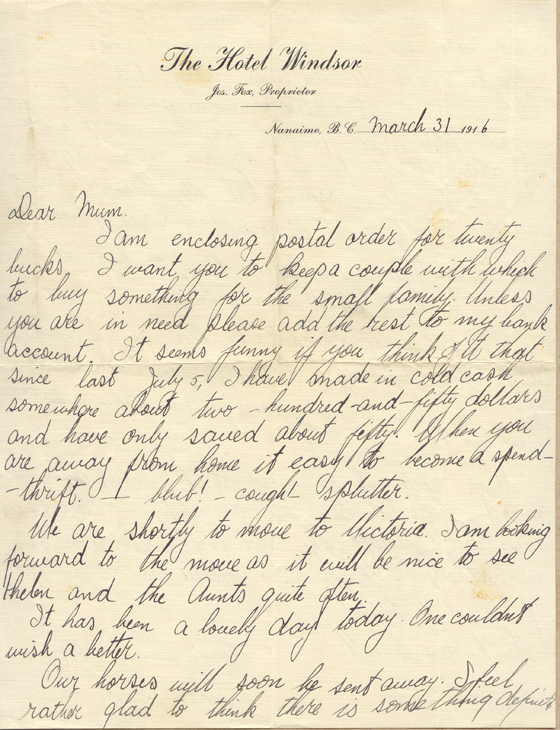 The Hotel Windsor
Jos. Fox, Proprietor
Nanaimo, B.C. March 31 1916
Dear Mum.
I am enclosing postal order for twenty
bucks. I want you to keep a couple with which
to buy something for the small family. Unless
you are in need please add the rest to my bank
account. It seems funny if you think of it that
since last July 5, I have made in cold cash
somewhere about two-hundred-and-fifty dollars
and have only saved about fifty. When you
are away from home it easy to become a spend-
-thrift. — blub! - cough! splutter.
We are shortly to move to Victoria. I am looking
forward to the move as it will be nice to see
Helen and the Aunts quite often.
It has been a lovely day today. One couldnt
wish a better.
Our horses will soon be sent away. I feel
rather glad to think there is something definite